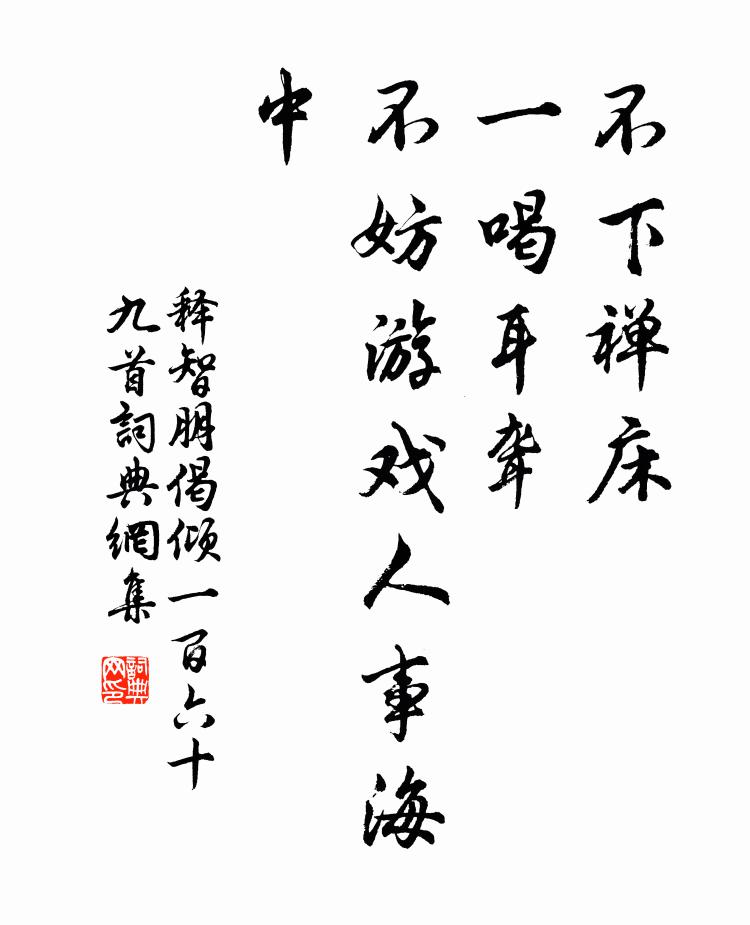 不下禅床
一喝耳聋
不妨游戏人事海
中
释智朋偈倾一百六十
九首詞典網集
詞典
网印